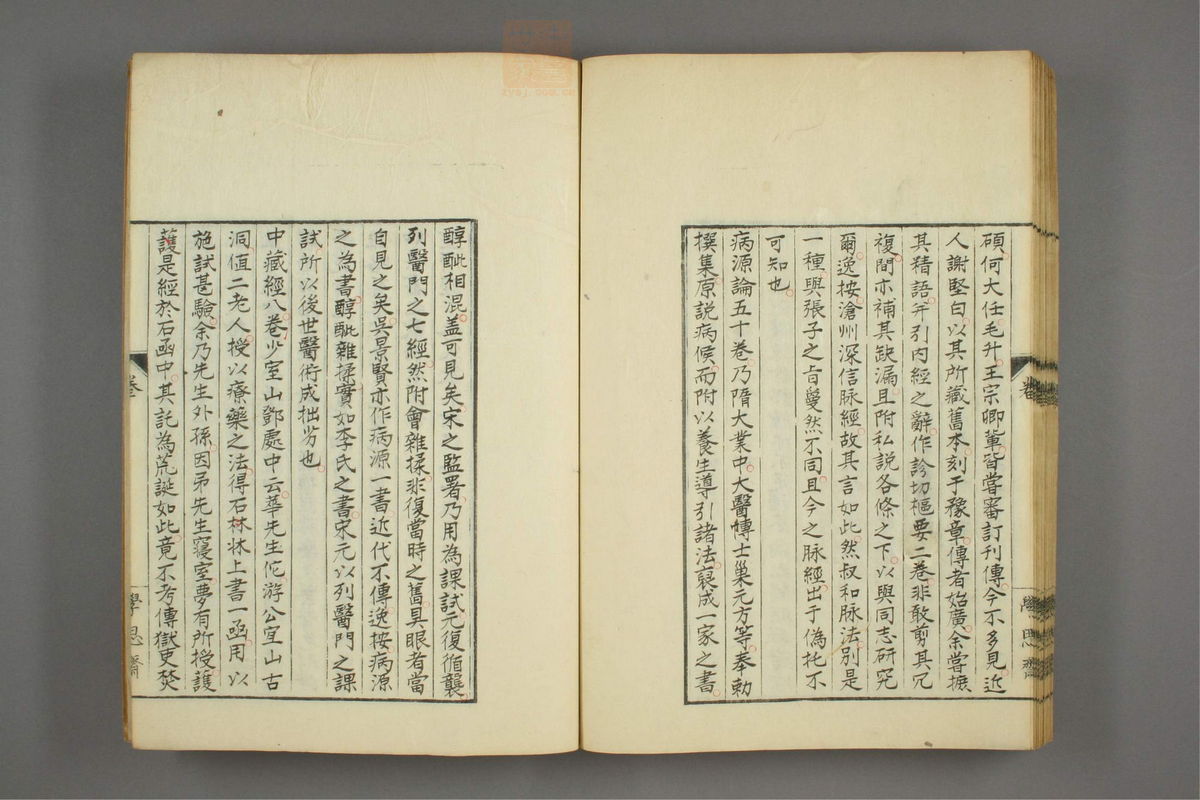 碩何大任毛升王宗卿軰皆嘗審訂刊傳今不多見近
人謝堅白以其所藏舊本刻于豫章傳者始廣余嘗摭
其精語并引內經之辭作診切樞要二卷非敢剪其冗
複間亦補其缺漏且附私說各條之下以與同志研究
爾逸按滄州深信脉經故其言如此然叔和脉法別是
一種與張子之旨敻然不同且今之脉經出于偽托不
可知也
病源論五十卷乃隋大業中大醫博士巢元方等奉勅
撰集原説病候而附以養生導引諸法裒成一家之書
醇砒相混蓋可見矣宋之監署乃用為課試元復循襲
列醫門之七經然附會雜揉非復當時之舊具眼者當
自見之矣吳景賢亦作病源一書近代不傳逸按病源
之為書醇砒雜揉實如李氏之書宋元以列醫門之課
試所以後世醫術成拙劣也
中藏經八卷少室山鄧處中云華先生佗游公宜山古
洞值二老人授以療藥之法得石牀上書一函用以
施試甚驗余乃先生外孫因弔先生寢室夢有所授護
護是經於石函中其託為荒誕如此竟不考傳獄吏焚
卷
學思齋
卷
學思齋